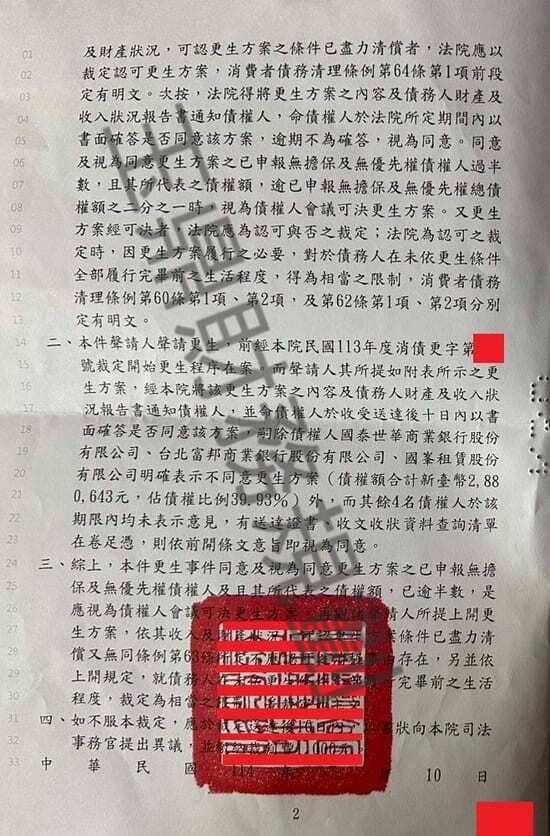 01 及財產狀況，可認更生方案之條件已盡力清償者，法院應以
02 裁定認可更生方案，消費者債務清理條例第64條第1項前段
03 定有明文。次按，法院得將更生方案之內容及債務人財產及
04 收入狀況報告書通知債權人，命債權人於法院所定期間內以
05 書面確答是否同意該方案，逾期不為確答，視為同意。同意
06 及視為同意更生方案之已申報無擔保及無優先權債權人過半
07 數，且其所代表之債權額，逾已申報無擔保及無優先權總債
08 權額之二分之一時，視為債權人會議可決更生方案。又更生
09 方案經可決者，法院應為認可與否之裁定；法院為認可之裁
10 定時，因更生方案履行之必要，對於債務人在未依更生條件
11 全部履行完畢前之生活程度，得為相當之限制，消費者債務
12 清理條例第60條第1項、第2項，及第62條第1項、第2項分別
13 定有明文。
14 二、本件聲請人聲請更生，前經本院民國113年度消債更字第
15 號裁定開始更生程序在案，而聲請人其所提如附表所示之更
16 生方案，經本院將該更生方案之內容及債務人財產及收入狀
17 況報告書通知債權人，並命債權人於收受送達後十日內以書
18 面確答是否同意該方案，嗣除債權人國泰世華商業銀行股份
19 有限公司、台北富邦商業銀行股份有限公司、國峯租賃股份
20 有限公司明確表示不同意更生方案（債權額合計新臺幣2,88
21 0,643元，佔債權比例39.93%）外，而其餘4名債權人於該
22 期限內均未表示意見，有送達證書、收文收狀資料查詢清單
23 在卷足憑，則依前開條文意旨即視為同意。
24 三、綜上，本件更生事件同意及視為同意更生方案之已申報無擔
25 保及無優先權債權人及且其所代表之債權額，已逾半數，是
26 應視為債權人會議可決更生方案。聲請人所提上開更
27 生方案，依其收入及財產狀況，可認更生方案條件已盡力清
28 償又無同條例第63條所定不應認可存在，另並依
29 上開規定，就債務人在未依更生條件完畢前之生活
30 程度，裁定為相當之限制
31 四、如不服本裁定，應於裁定送達後10日內以書狀向本院司法
32 事務官提出異議，並1,000元
33 中 華 民 國 114 年 月 10 日
2